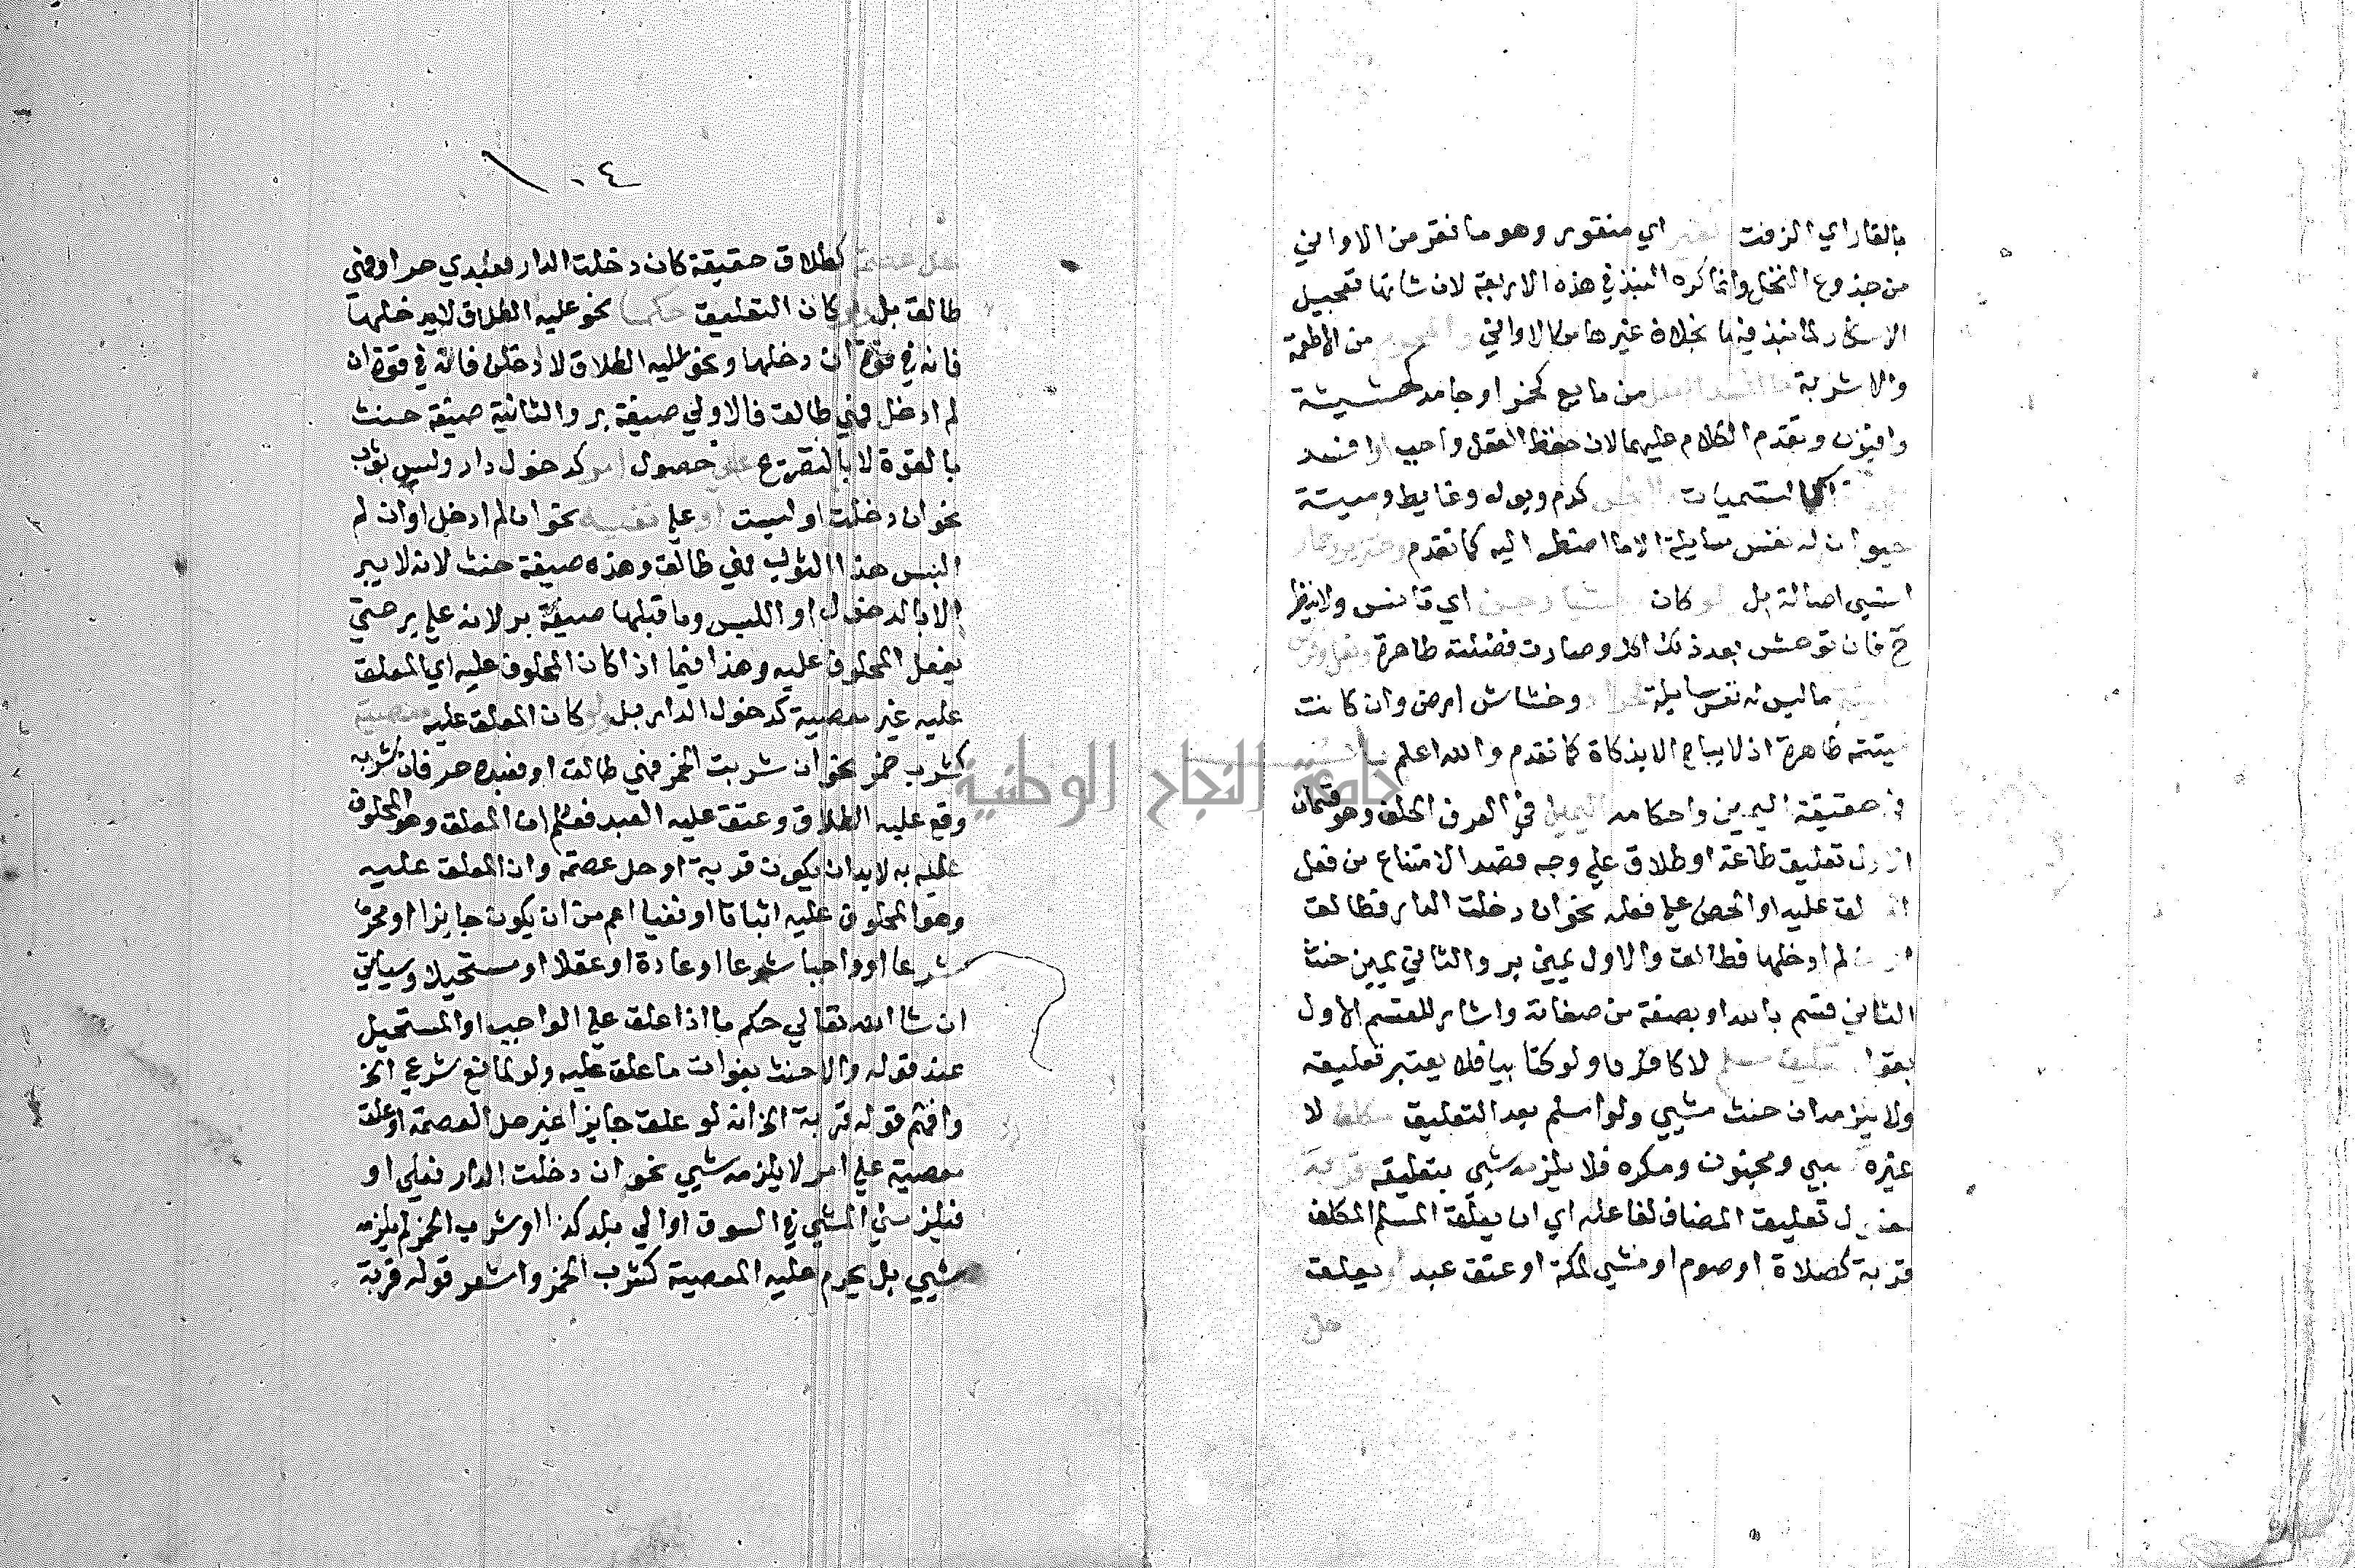 بالقار اي الزفت اي منقور وهو ما نقر من الاواني
من جذوع النخل وانما كره النبذ في هذه الاربعة لان شانها تعجيل
الاسكار لما نبذ فيها بخلاف غيرها من الاواني من الاطعمة
والاشربة من مايع كخمر او جامد كحشيشة
وافيون وتقدم الكلام عليهما لان حفظ العقل واجب
كدم وبول وغايط وميتة
حيوان له نفس سايلة الا ما اضطر اليه كما تقدم
انسي اصالة بل لو كان وحشيا وحين اي تانس ولا ينظر
فان توحش بعد ذلك اكل وصارت فضلته طاهرة
ما ليس له نفس سايلة وخشاش ارض وان كانت
ميتته طاهرة اذ لا يباح الا بذكاة كما تقدم والله اعلم
في حقيقة اليمين واحكامه اليمين في العرف الحلف وهو قسمان
الاول تعليق طاعة او طلاق علي وجه قصد الامتناع من فعل
المعلق عليه او الحض علي فعله نحو ان دخلت الدار فطالق
لم ادخلها فطالق والاول يمين بر والثاني يمين حنث
الثاني قسم بالله او بصفة من صفاته واشار للقسم الاول
بقوله تعليق مسلم لا كافر ولو كتابيا فلا يعتبر تعليقه
ولا يلزمه ان حنث شيي ولو اسلم بعد التعليق مكلف لا
غيره صبي ومجنون ومكره فلا يلزمه شيي بتعليقه قربة
مفعول تعليق المضاف لفاعله اي ان يعلق المسلم المكلف
قربة كصلاة او صوم او مشي لمكة او عتق عبد او يعلق
حل
١٠٤
حل عصمة كطلاق حقيقة كان دخلت الدار فعبدي حر او فهي
طالق بل ولو كان التعليق حكما نحو عليه الطلاق لا يدخلها
فانه في قوة ان دخلها ونحو عليه الطلاق لا دخلن فانه في قوة ان
لم ادخل فهي طالق فالاولي صيغة بر والثانية صيغة حنث
بالقوة لا بالتصريح علي حصول امر كدخول دار ولبس ثوب
نحو ان دخلت او لبست او علي نفيه نحو ان لم ادخل او ان لم
البس هذا الثوب فهي طالق وهذه صيغة حنث لانه لا يبر
الا بالدخول او اللبس وما قبلها صيغة بر لانه علي بر حتي
يفعل المحلوف عليه وهذا فيما اذا كان المحلوف عليه اي المعلق
عليه غير معصية كدخول الدار بل ولو كان المعلق عليه معصية
كشرب خمر نحو ان شربت الخمر فهي طالق او فعبده حر فان شربه
وقع عليه الطلاق وعتق عليه العبد فعلم ان المعلق وهو المحلوف
عليه به لا بد ان يكون قربة او حل عصمة وان المعلق عليه
وهو المحلوف عليه اثباتا او نفيا اعم من ان يكون جايزا او محرما
شرعا او واجبا شرعا او عادة او عقلا او مستحيلا وسياتي
ان شا الله تعالي حكم ما اذا علق علي الواجب او المستحيل
عند قوله والا حنث بفوات ما علق عليه ولو لمانع شرعي الخ
وافهم قوله قربة الخ انه لو علق جايزا غير حل العصمة او علق
معصية علي امر لا يلزمه شيي نحو ان دخلت الدار فعلي او
فيلزمني المشي في السوق او الي بلد كذا او شرب الخمر لم يلزمه
شيي بل يحرم عليه المعصية كشرب الخمر واشعر قوله قربة
جامعة النجاح الوطنية